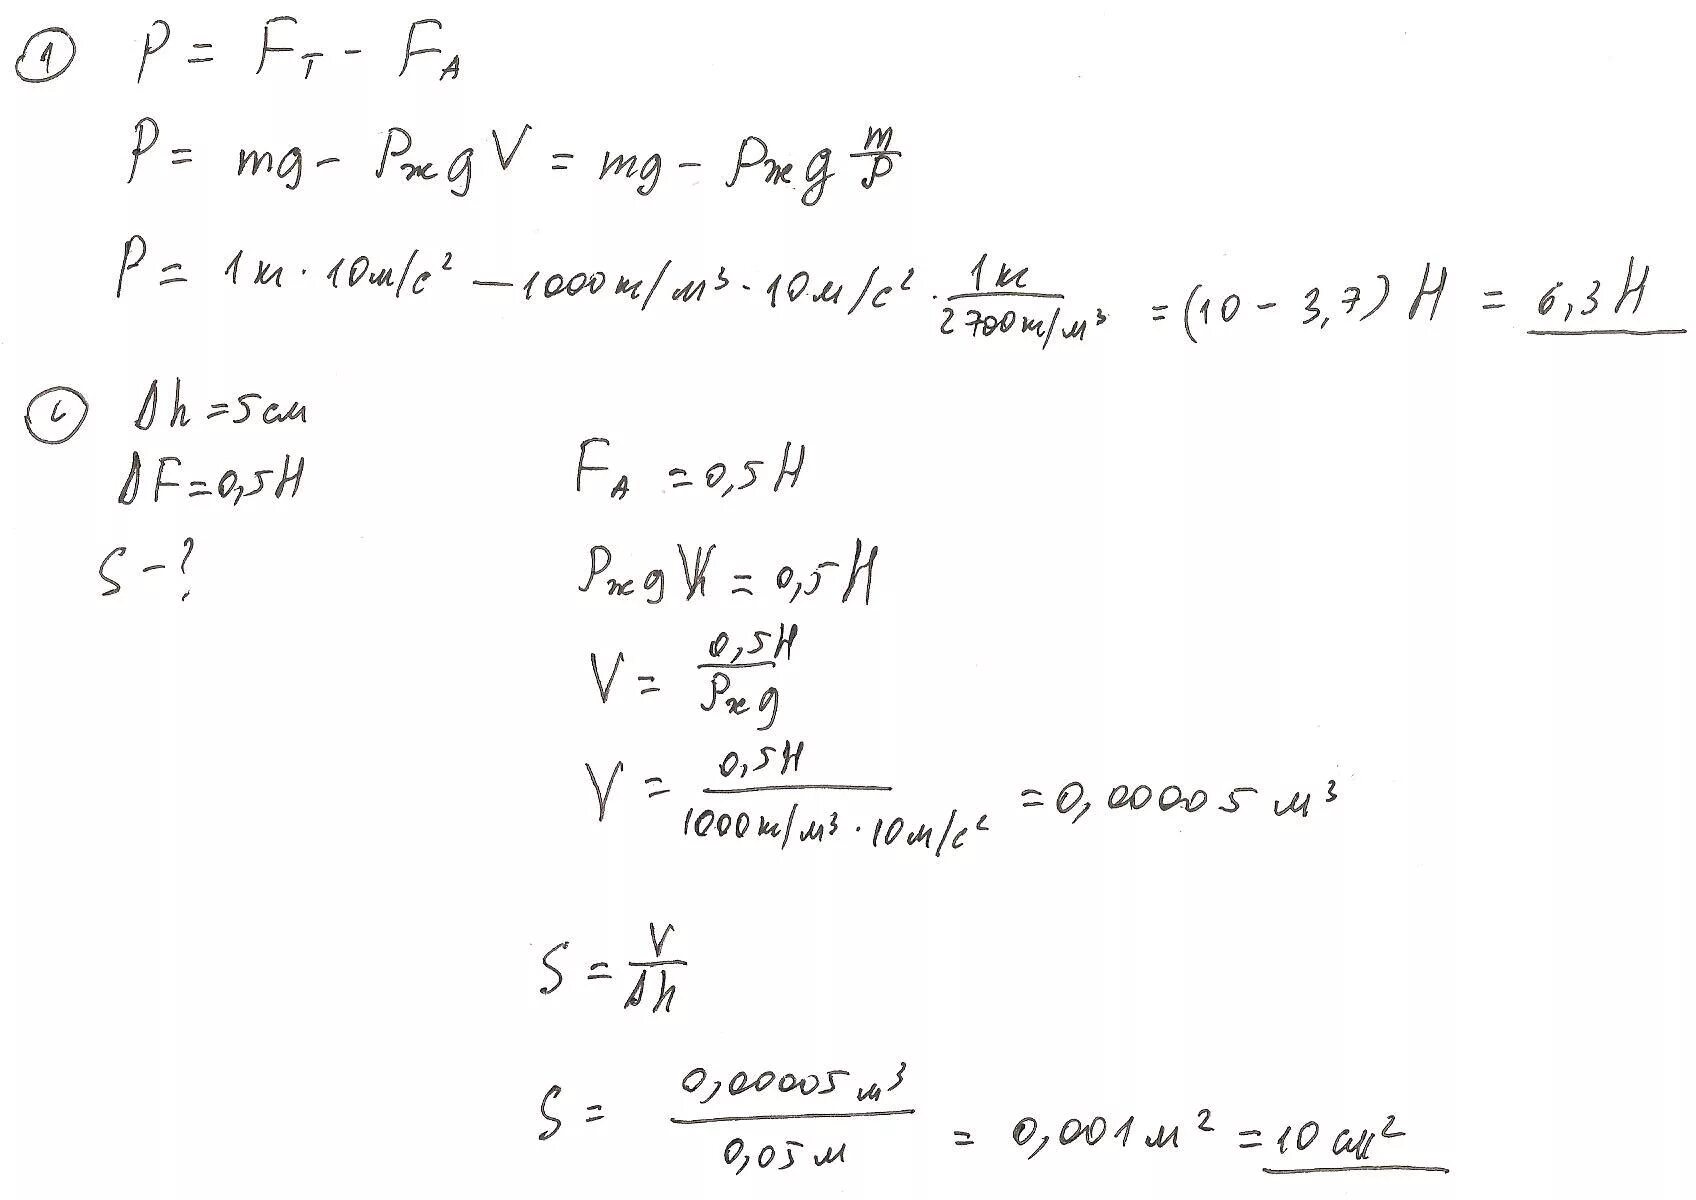 ① P = Fт - FA
P = mg - ρж g V = mg - ρж g m/ρ
P = 1кг · 10м/с² - 1000кг/м³ · 10м/с² · 1кг/2700кг/м³ = (10 - 3,7) Н = 6,3 Н
② Δh = 5 см
ΔF = 0,5 Н
S - ?
FA = 0,5 Н
ρж g V = 0,5 Н
V = 0,5 Н/ρж g
V = 0,5 Н/1000кг/м³ · 10м/с² = 0,00005 м³
S = V/Δh
S = 0,00005 м³/0,05 м = 0,001 м² = 10 см²